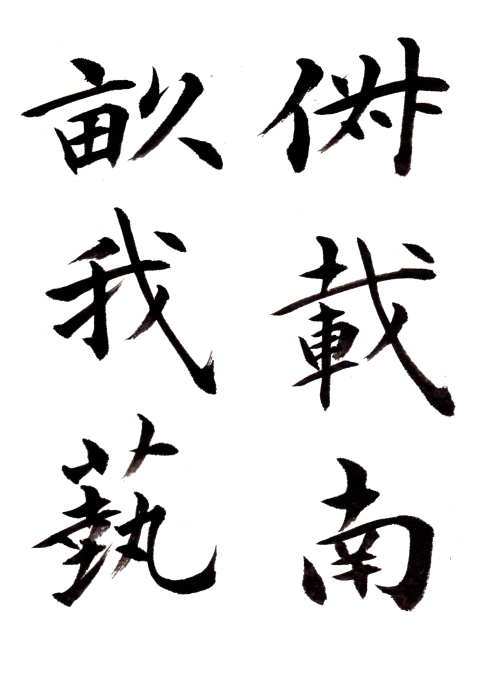 俶載南
畝我蓺